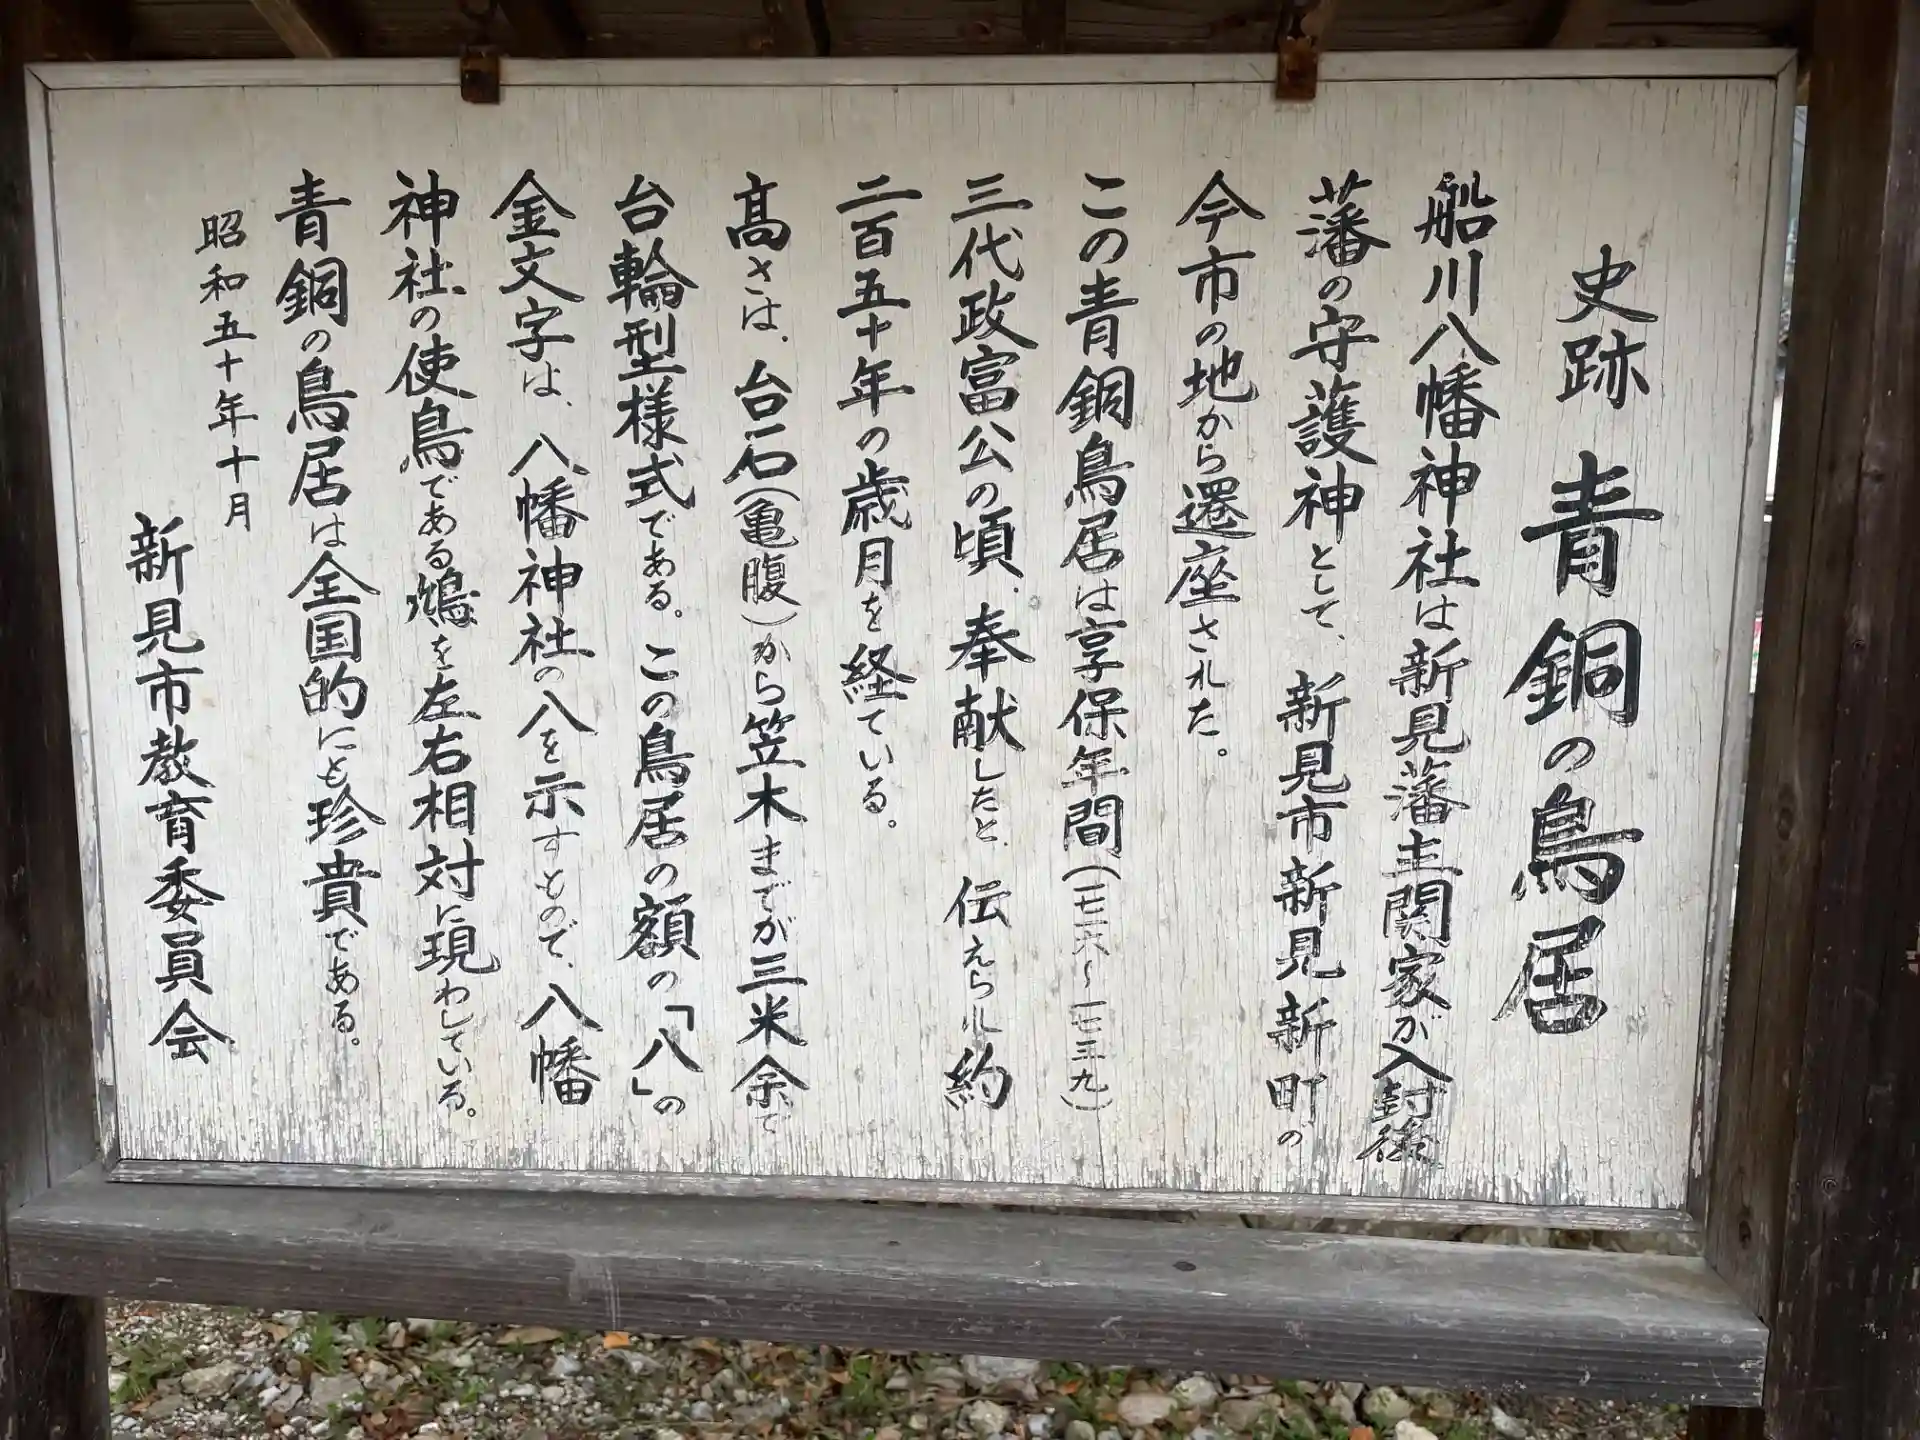 史跡 青銅の鳥居
船川八幡神社は新見藩主関家が入封後
藩の守護神として、新見市新見新町の
今市の地から還座された。
この青銅鳥居は享保年間(一七一六～一七三九)
三代政富公の頃、奉献したと、伝えられ約
二百五十年の歳月を経ている。
髙さは、台石(亀腹)から笠木までが三米余で
台輪型様式である。この鳥居の額の「八」の
金文字は、八幡神社の八を示すもので、八幡
神社の使鳥である鳩を左右相対に現わしている。
青銅の鳥居は全国的にも珍貴である。
昭和五十年十月
新見市教育委員会